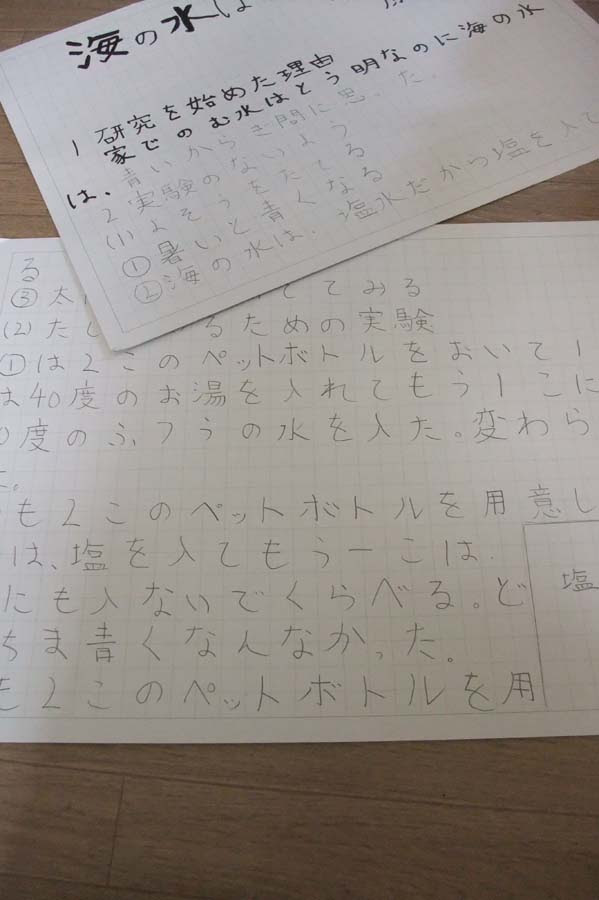 海の水は
1 研究を始めた理由
家でのむ水はとう明なのに海の水
は、青いからぎ問に思った。
2 実験のないよう
(1)よそうをたてる
①暑いと青くなる
②海の水は、塩水だから塩を入て
る
③太 ててみる
(2)たし るための実験
①は2このペットボトルをおいて1
は40度のお湯を入れてもう1こに
0度のふつうの水を入た。変わら
た。
も2このペットボトルを用意し
は、塩を入てもう一こは、
にも入ないでくらべる。ど
ちま青くなんなかった。
も2このペットボトルを用
塩